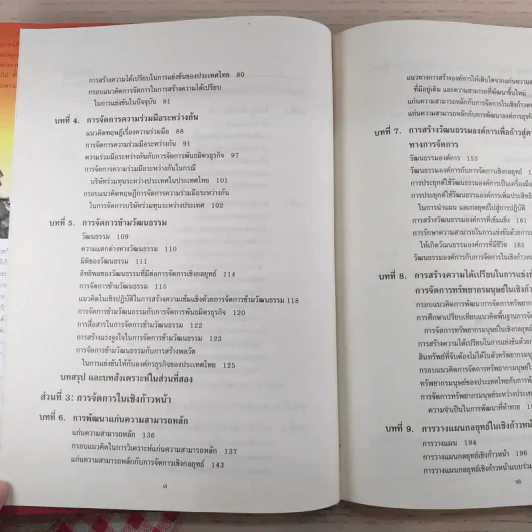 การสร้างความได้เปรียบในการแข่งขันของประเทศไทย 80
กรอบแนวคิดการจัดการในการสร้างความได้เปรียบ
ในการแข่งขันในปัจจุบัน 81
บทที่ 4. การจัดการความร่วมมือระหว่างกัน
แนวคิดทฤษฎีเรื่องความร่วมมือ 88
การจัดการความร่วมมือระหว่างกัน 91
ความร่วมมือระหว่างกันกับการจัดการพันธมิตรธุรกิจ 97
การจัดการความร่วมมือระหว่างกันในกรณี
บริษัทร่วมทุนระหว่างประเทศในประเทศไทย 101
กรอบแนวคิดทฤษฎีการจัดการความร่วมมือระหว่างกัน
ในการจัดการบริษัทร่วมทุนระหว่างประเทศ 102
บทที่ 5. การจัดการข้ามวัฒนธรรม
วัฒนธรรม 109
ความแตกต่างทางวัฒนธรรม 110
มิติของวัฒนธรรม 111
อิทธิพลของวัฒนธรรมที่มีต่อการจัดการเชิงกลยุทธ์ 114
การจัดการข้ามวัฒนธรรม 115
แนวคิดในเชิงปฏิบัติในการสร้างความเข้มแข็งด้วยการจัดการข้ามวัฒนธรรม 118
การจัดการข้ามวัฒนธรรมกับการจัดการพันธมิตรธุรกิจ 120
การสื่อสารในการจัดการข้ามวัฒนธรรม 122
การสร้างแรงจูงใจในการจัดการข้ามวัฒนธรรม 123
การจัดการข้ามวัฒนธรรมกับการสร้างพลวัต
ในการแข่งขันให้กับองค์การธุรกิจของประเทศไทย 125
บทสรุป และบทสังเคราะห์ในส่วนที่สอง
ส่วนที่ 3: การจัดการในเชิงก้าวหน้า
บทที่ 6. การพัฒนาแก่นความสามารถหลัก
แก่นความสามารถหลัก 136
กรอบแนวคิดในการวิเคราะห์แก่นความสามารถหลัก 137
แก่นความสามารถหลักกับการจัดการเชิงกลยุทธ์ 143
vi
แนวทางการสร้างองค์การให้เติบโตจากแก่นความสามารถ
ที่มีอยู่เดิม และความสามารถที่พัฒนาขึ้นใหม่
แก่นความสามารถหลักกับการจัดการในเชิงก้าวหน้า
แก่นความสามารถหลักกับการพัฒนาองค์การธุรกิจ
บทที่ 7. การสร้างวัฒนธรรมองค์การเพื่อก้าวสู่
ทางการจัดการ
วัฒนธรรมองค์การ 153
วัฒนธรรมองค์การกับการจัดการเชิงกลยุทธ์
การประยุกต์ใช้วัฒนธรรมองค์การเป็นเครื่องมือ
การประยุกต์ใช้วัฒนธรรมองค์การเพิ่มประสิทธิ
ในการนำแผน และกลยุทธ์ไปสู่การปฏิบัติ
การสร้างวัฒนธรรมองค์การที่เข้มแข็ง 161
การรักษาความสามารถในการแข่งขันด้วยการ
ให้เกิดวัฒนธรรมองค์การที่มีชีวิต 165
วัฒนธรรมองค์การกับการจัดการในเชิงก้าวหน้า
บทที่ 8. การสร้างความได้เปรียบในการแข่งขัน
การจัดการทรัพยากรมนุษย์ในเชิง
กรอบแนวคิดการพัฒนาการจัดการทรัพยากร
การศึกษาเปรียบเทียบแนวคิดพื้นฐานการจัด
การจัดการทรัพยากรมนุษย์ในเชิงกลยุทธ์
การสร้างความได้เปรียบในการแข่งขันด้วย
สินทรัพย์ที่จับต้องไม่ได้ในตัวทรัพยากรมนุษย์
กรอบแนวคิดการจัดการทรัพยากรมนุษย์
ทรัพยากรมนุษย์ของประเทศไทยกับการ
การจัดการทรัพยากรมนุษย์ระหว่างประเทศ
ความจำเป็นในการพัฒนาที่ท้าทาย
บทที่ 9. การวางแผนกลยุทธ์ในเชิงก้าวหน้า
การวางแผน 194
การวางแผนกลยุทธ์เชิงก้าวหน้า 196
การวางแผนกลยุทธ์เชิงก้าวหน้าแบบร่วม
vii